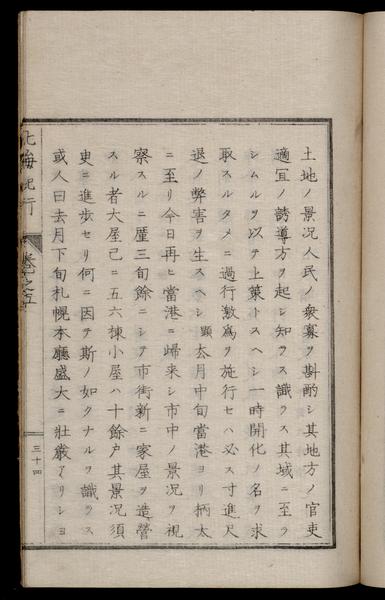 土地ノ景況人民ノ衆寡ヲ斟酌シ其地方ノ官吏
適宜ノ誘導方ヲ起シ知ラス識ラス其域ニ至ラ
シムルヲ以テ上策トスヘシ一時開化ノ名ヲ求
取スルタメニ過行激為ヲ施行セハ必ス寸進尺
退ノ弊害ヲ生スヘシ顕去月中旬當港ヨリ柄太
ニ至リ今日再ヒ當港ニ帰来シ市中ノ景況ヲ視
察スルニ厪三旬餘ニシテ市街新ニ家屋ヲ造營
スル者大屋己ニ五六棟小屋ハ十餘戸其景況須
叓ニ進歩セリ何ニ因テ斯ノ如クナルヲ識ラス
或人曰去月下旬札幌本廳盛大ニ壮嚴アリシヨ
北海紀行
巻之五
三十四